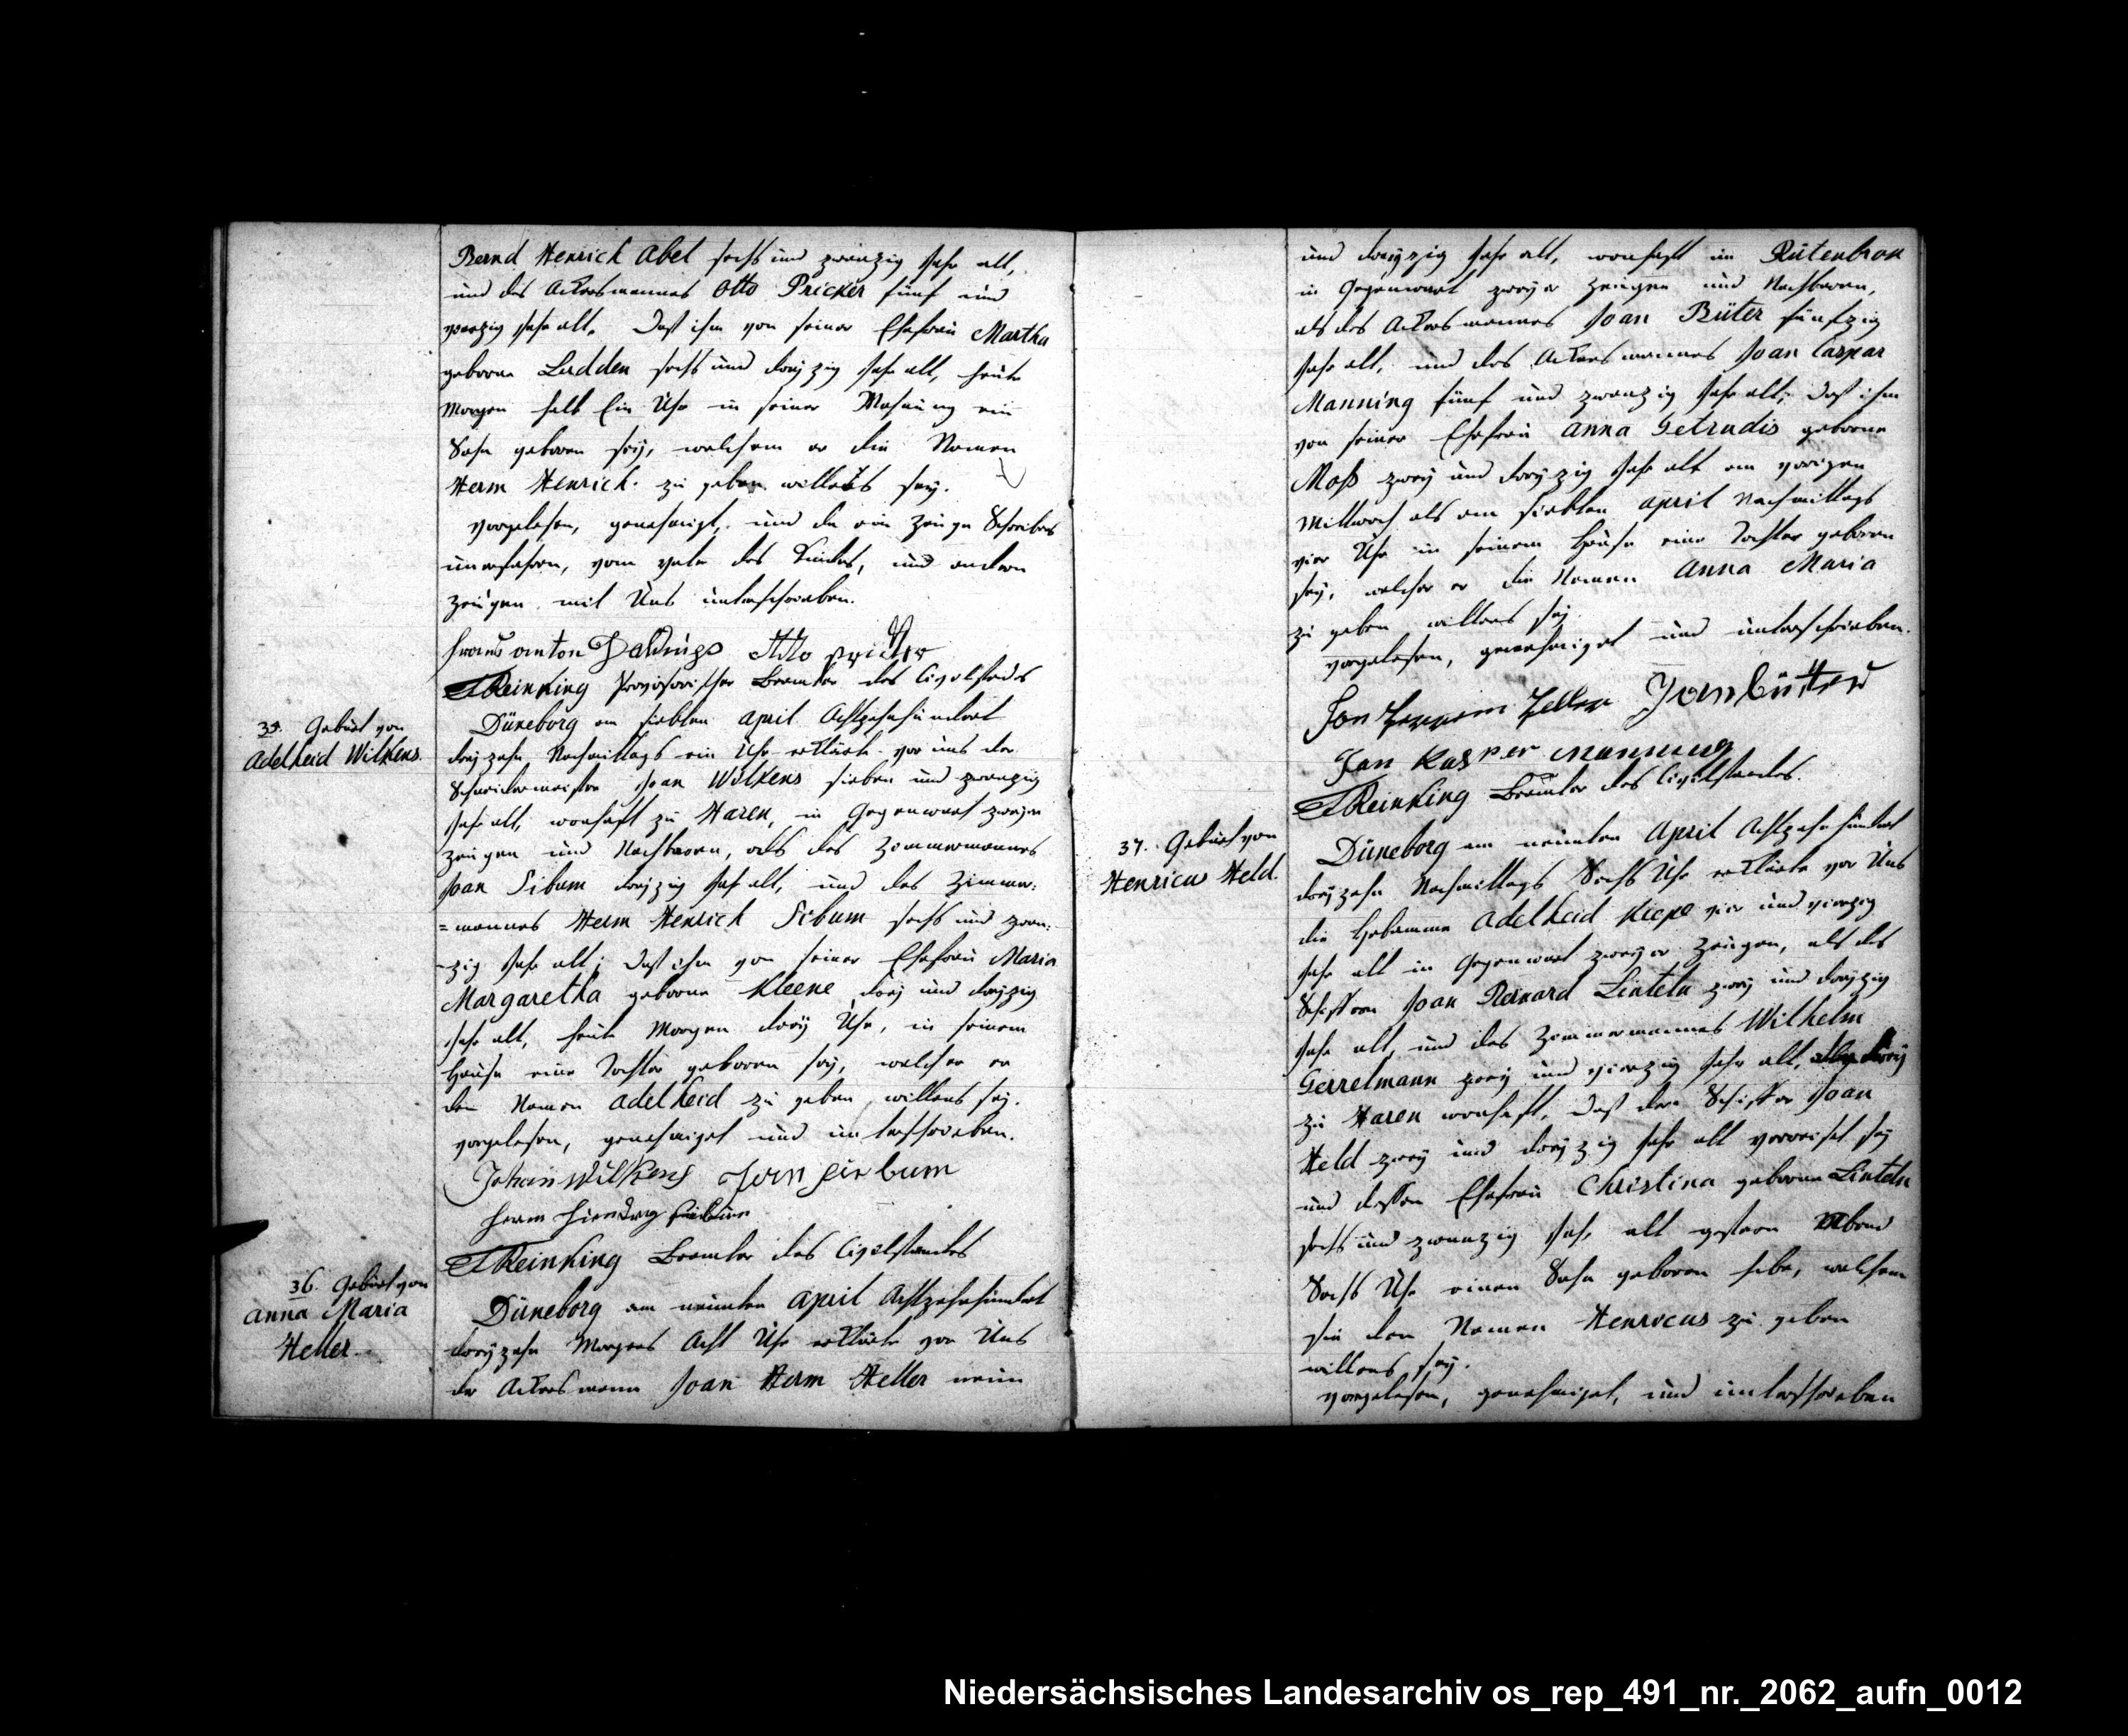 Bernd Henrich Abel sechs und zwanzig Jahr alt,
und des Ackersmannes Otto Pricker fünf und
vierzig Jahr alt. Daß ihm von seiner Ehefrau Martha
geborne Ludden sechs und dreyzig Jahr alt, heute
Morgen halb Ein Uhr in seiner Wohnung ein
Sohn geboren sey, welchem er die Namen
Herm Henrich zu geben willens sey.
vorgelesen, genehmigt, und da ein Zeuge Schreibens
unerfahren, vom Vater des Kindes, und andern
Zeugen mit Uns unterschrieben.
Frans anton Otto pricker
Reinking Provisorischer Beamter des Civilstandes
35. Geburt von
Adelheid Wilkens.
Düneborg am siebten April Achtzehnhundert
dreyzehn Nachmittags ein Uhr erklärte vor uns der
Schneidermeister Joan Wilkens sieben und zwanzig
Jahr alt, wonhaft zu Haren, in Gegenwart zweyer
Zeugen und Nachbaren, als des Zimmermannes
Joan Sibum dreyzig Jahr alt, und des Zimmer:
=mannes Herm Henrich Sibum sechs und zwan:
-zig Jahr alt; Daß ihm von seiner Ehefrau Maria
Margaretha geborne Kleene drey und dreyzig
Jahr alt, heute Morgen drey Uhr, in seinem
Hause eine Tochter geboren sey, welcher er
den Namen Adelheid zu geben willens sey.
vorgelesen, genehmiget und unterschrieben.
Johan Wilkens Jan Siebum
Herm Hiendrg
Reinking Beamter des Civilstandes
36. Geburt von
Anna Maria
Heller.
Düneborg am neunten April Achtzehnhundert
dreyzehn Morgens Acht Uhr erklärte vor Uns
der Ackersmann Joan Herm Heller neun
und dreyzig Jahr alt, wonhaft in Rütenbrok
in Gegenwart zweyer Zeugen und Nachbaren,
als des Ackersmannes Joan Büter fünfzig
Jahr alt, und des Ackersmannes Joan Caspar
Manning fünf und zwanzig Jahr alt; Daß ihm
von seiner Ehefrau Anna Getrudis geborne
Moß zwey und dreyzig Jahr alt am vorigen
Mittwoch als am siebten April Nachmittags
vier Uhr in seinem Hause eine Tochter geboren
sey, welcher er die Namen Anna Maria
zu geben willens sey
vorgelesen, genehmiget und unterschrieben.
Jan Herrem Heller Jan bütter
Jan Kasper Manning
Reinking Beamter des Civilstandes.
37. Geburt von
Henricus Held.
Düneborg am neunten April Achtzehnhundert
dreyzehn Nachmittags Sechs Uhr erklärte vor Uns
die Hebamme Adelheid Kiepe vier und vierzig
Jahr alt in Gegenwart zweyer Zeugen, als des
Schiffern Joan Bernard Linteln zwey und dreyzig
Jahr alt, und des Zimmermannes Wilhelm
Gerrelmann zwey und vierzig Jahr alt, alle drey
zu Haren wonhaft, Daß der Schiffer Joan
Held zwey und dreyzig Jahr alt verreiset sey
und dessen Ehefrau Christina geborne Linteln
sechs und zwanzig Jahr alt gestern Abend
Sechs Uhr einen Sohn geboren habe, welchem
sie den Namen Henricus zu geben
willens sey.
vorgelesen, genehmiget, und unterschrieben
Niedersächsisches Landesarchiv os_rep_491_nr._2062_aufn_0012